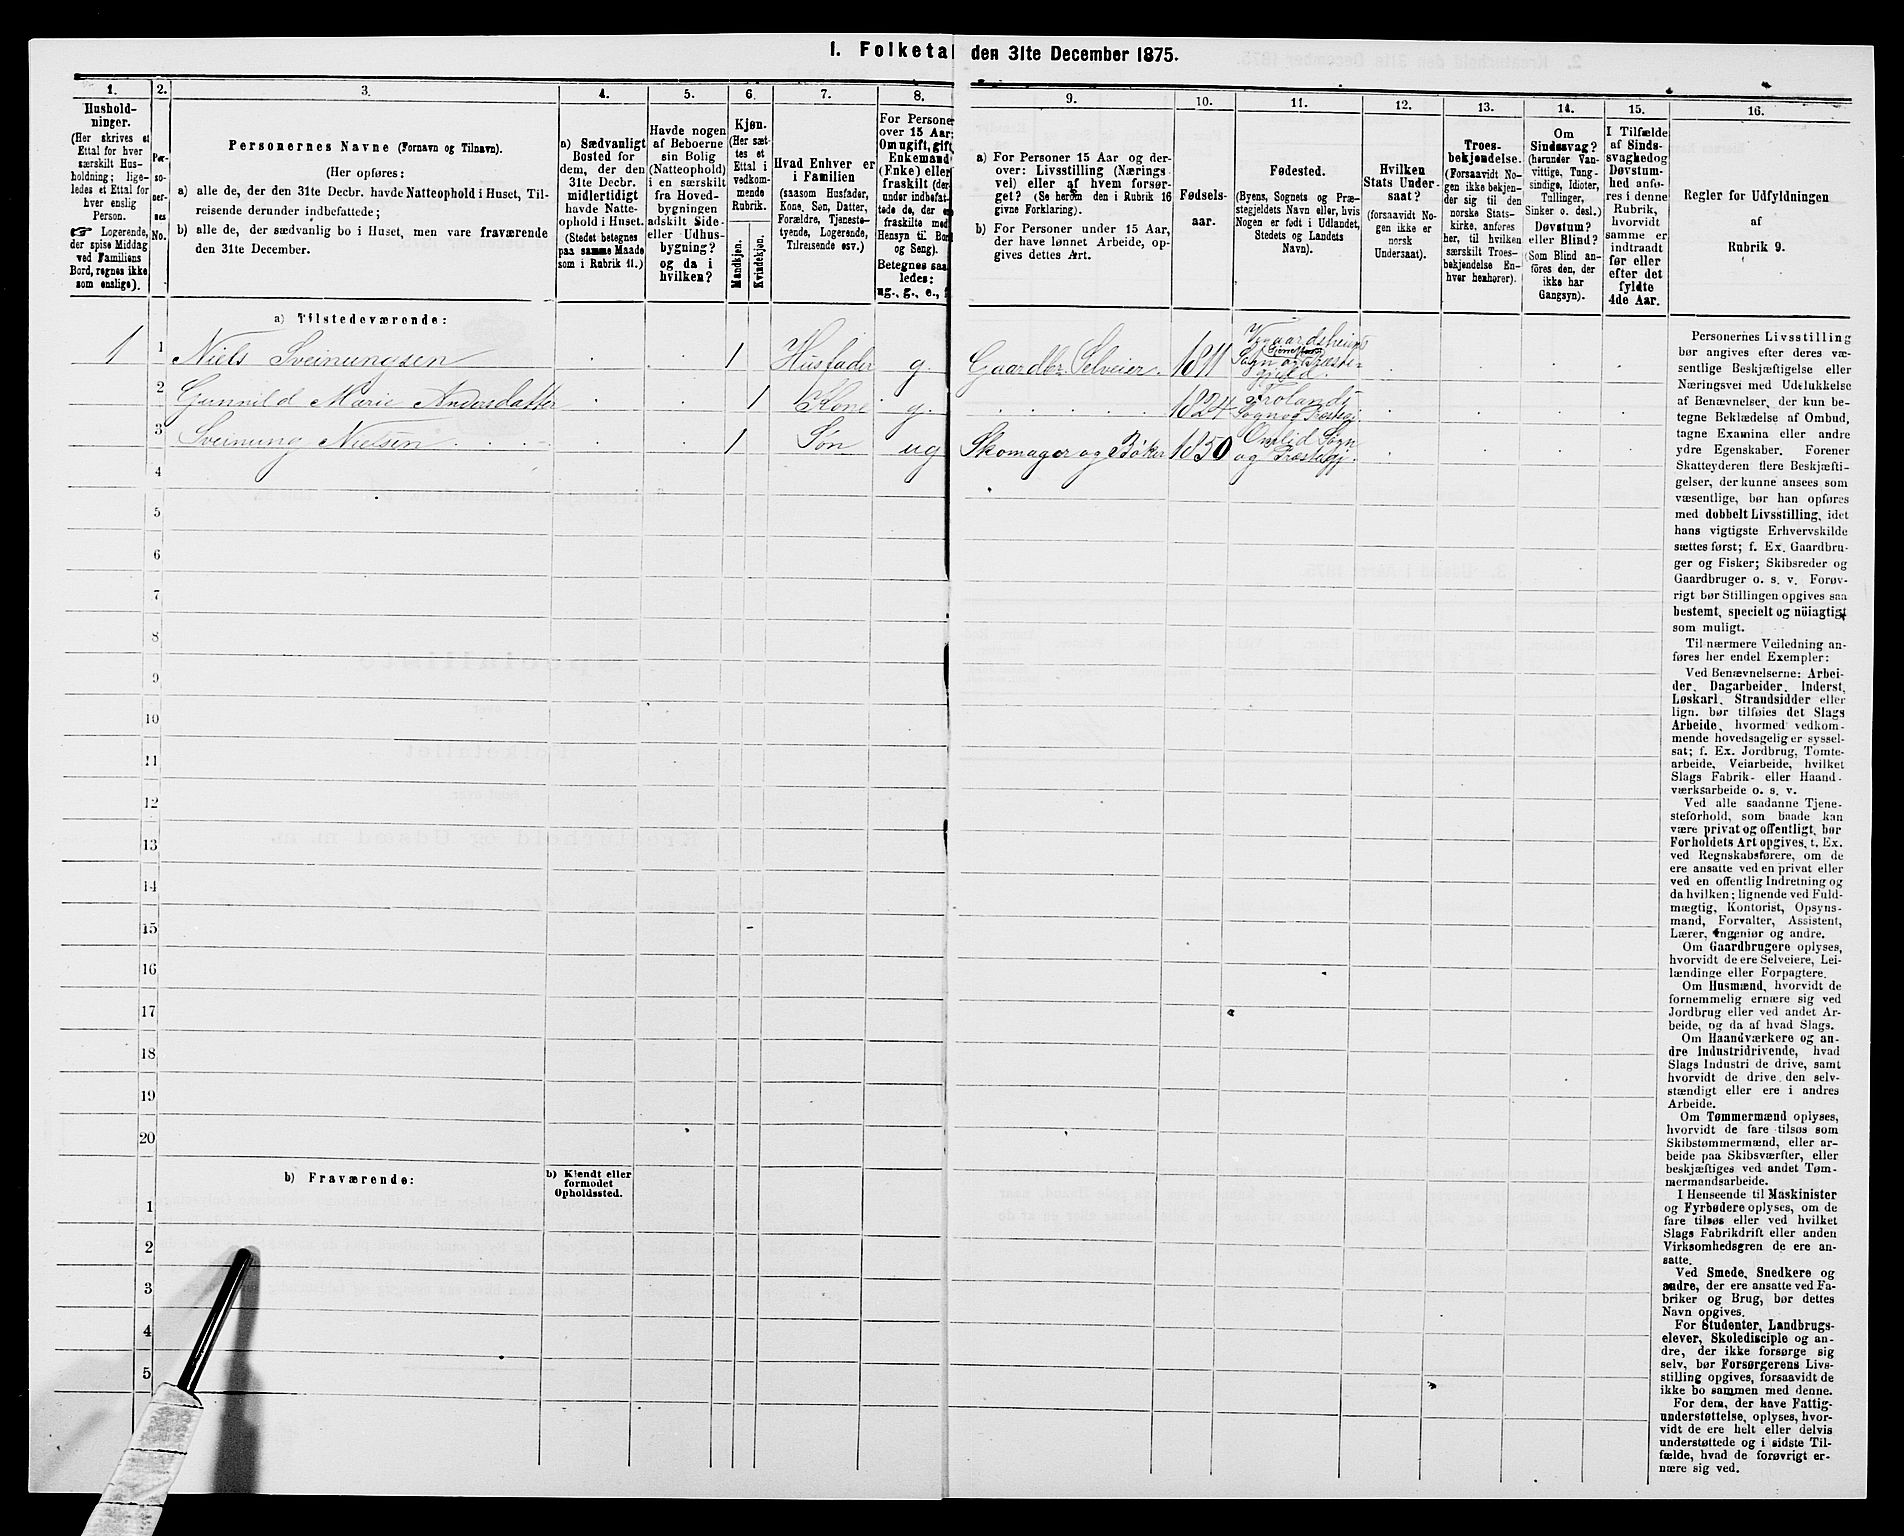 1. Folketal den 31te December 1875.
1.
Hushold-
ninger.
(Her skrives et
Ettal for hver
særskilt Hus-
holdning; lige-
ledes et Ettal for
hver enslig
Person.
Logerende,
der spise Middag
ved Familiens
Bord, regnes ikke
som enslige).
2.
Per-
so-
ner-
nes
No.
3.
Personernes Navne (Fornavn og Tilnavn).
(Her opføres:
a) alle de, der den 31te Decbr. havde Natteophold i Huset, Til-
reisende derunder indbefattede;
b) alle de, der sædvanlig bo i Huset, men vare fraværende
den 31te December.
4.
a) Sædvanligt
Bosted for
dem, der den
31te Decbr.
midlertidigt
havde Natte-
ophold i Huset.
(Stedet betegnes
paa samme Maade
som i Rubrik 11.)
5.
Havde nogen
af Beboerne
sin Bolig
(Natteophold)
i en særskilt
fra Hoved-
bygningen
adskilt Side-
eller Udhus-
bygning?
og da i
hvilken?
6.
Kjøn.
(Her sæt-
tes et
Ettal i
vedkom-
mende
Rubrik.
Mandkjøn.
Kvindekjøn.
7.
Hvad Enhver er
i Familien
(saasom Husfader,
Kone, Søn, Datter,
Forældre, Tjeneste-
tyende, Logerende,
Tilreisende osv.)
8.
For Personer
over 15 Aar:
Om ugift, gift,
Enkemand
(Enke) eller
fraskilt (der-
under indbefat-
tede de, der er
fraskilte med
Hensyn til Bord
og Seng).
Betegnes saa-
ledes:
ug., g., e.,
9.
a) For Personer 15 Aar og der-
over: Livsstilling (Nærings-
vei) eller af hvem forsør-
get? (Se herom den i Rubrik 16
givne Forklaring).
b) For Personer under 15 Aar,
der have lønnet Arbeide, op-
gives dettes Art.
10.
Fødsels-
aar.
11.
Fødested.
(Byens, Sognets og Præ-
stegjeldets Navn eller, hvis
Nogen er født i Udlandet,
Stedets og Landets
Navn).
12.
Hvilken
Stats Under-
saat?
(forsaavidt No-
gen ikke er
norsk
Undersaat).
13.
Troes-
bekjendelse.
(Forsaavidt No-
gen ikke bekjen-
der sig til den
norske Stats-
kirke, anføres
her, til hvilken
særskilt Troes-
bekjendelse En-
hver henhører).
14.
Om
Sindssvag?
(herunder Van-
vittige, Tung-
sindige, Idioter,
Tullinger,
Sinker o. desl.)
Døvstum?
eller Blind?
(Som Blind an-
føres den, der
ikke har
Gangsyn).
15.
I Tilfælde
af Sinds-
svaghed og
Døvstum-
hed anfø-
res i denne
Rubrik,
hvorvidt
samme er
indtraadt
før eller
efter det
fyldte
4de Aar.
16.
Regler for Udfyldningen
af
Rubrik 9.
a) Tilstedeværende:
1 1 Niels Sveinungsen 1 Husfader g. Gaardbr. Selveier. 1811 Vegaardsheiens Sogn og Præste-
gjeld.
2 Gunnild Marie Andersdatter 1 Kone g. 1824 Frolands
Sogn og Præstegj.
3 Sveinung Nielsen 1 Søn ug Skomager og Bøker 1850 Omlid Sogn
og Præstegj.
4
5
6
7
8
9
10
11
12
13
14
15
16
17
18
19
20
b) Fraværende:
b) Kjendt eller
formodet
Opholdssted.
1
2
3
4
5
Personernes Livsstilling
bør angives efter deres væ-
sentlige Beskjæftigelse eller
Næringsvei med Udelukkelse
af Benævnelser, der kun be-
tegne Beklædelse af Ombud,
tagne Examina eller andre
ydre Egenskaber. Forener
Skatteyderen flere Beskjæfti-
gelser, der kunne ansees som
væsentlige, bør han opføres
med dobbelt Livsstilling, idet
hans vigtigste Erhvervskilde
sættes først; f. Ex. Gaardbru-
ger og Fisker; Skibsreder og
Gaardbruger o. s. v. Forøv-
rigt bør Stillingen opgives saa
bestemt, specielt og nöiagtigt
som muligt.
Til nærmere Veiledning an-
føres her endel Exempler:
Ved Benævnelserne: Arbei-
der, Dagarbeider, Inderst,
Løskarl, Strandsidder eller
lign. bør tilføies det Slags
Arbeide, hvormed vedkom-
mende hovedsagelig er syssel-
sat; f. Ex. Jordbrug, Tomte-
arbeide, Veiarbeide, hvilket
Slags Fabrik- eller Haand-
værksarbeide o. s. v.
Ved alle saadanne Tjene-
steforhold, som baade kan
være privat og offentligt, bør
Forholdets Art opgives, t. Ex.
ved Regnskabsførere, om de
ere ansatte ved en privat eller
ved en offentlig Indretning og
da hvilken; lignende ved Fuld-
mægtig, Kontorist, Opsyns-
mand, Forvalter, Assistent,
Lærer, Ingeniør og andre.
Om Gaardbrugere oplyses,
hvorvidt de ere Selveiere, Lei-
lændinge eller Forpagtere.
Om Husmænd, hvorvidt de
fornemmelig ernære sig ved
Jordbrug eller ved andet Ar-
beide, og da af hvad Slags.
Om Haandværkere og an-
dre Industridrivende, hvad
Slags Industri de drive, samt
hvorvidt de drive den selv-
stændigt eller ere i andres
Arbeide.
Om Tømmermænd oplyses,
hvorvidt de fare tilsøs som
Skibstømmermænd, eller ar-
beide paa Skibsværfter, eller
beskjæftiges ved andet Tøm-
mermandsarbeide.
I Henseende til Maskinister
og Fyrbødere oplyses, om de
fare tilsøs eller ved hvilket
Slags Fabrikdrift eller anden
Virksomhedsgren de ere an-
satte.
Ved Smede, Snedkere og
andre, der ere ansatte ved Fa-
briker og Brug, bør dettes
Navn opgives.
For Studenter, Landbrugs-
elever, Skoledisciple og an-
dre, der ikke forsørge sig
selv, bør Forsørgerens Livs-
stilling opgives, forsaavidt de
ikke bo sammen med denne.
For dem, der have Fattig-
understøttelse, oplyses, hvor-
vidt de ere helt eller delvis
understøttede og i sidste Til-
fælde, hvad de forøvrigt er-
nære sig ved.